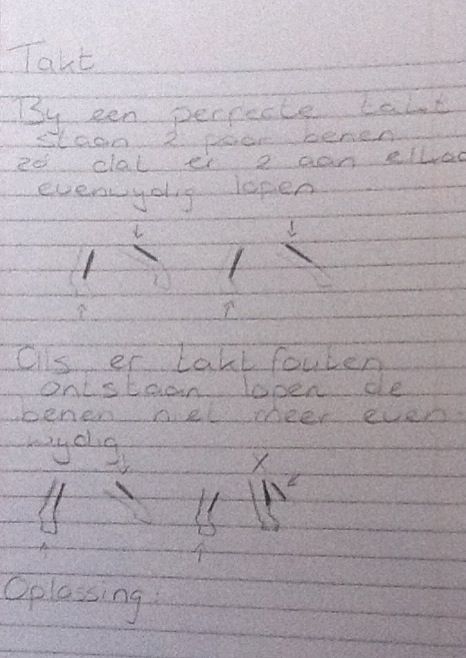 Takt
By een perfecte takt
staan 2 paar benen
zó dat er 2 aan elkaa
evenwydig lopen
Als er taktfouten
ontstaan lopen de
benen niet meer even
wydig
X
Oplassing: